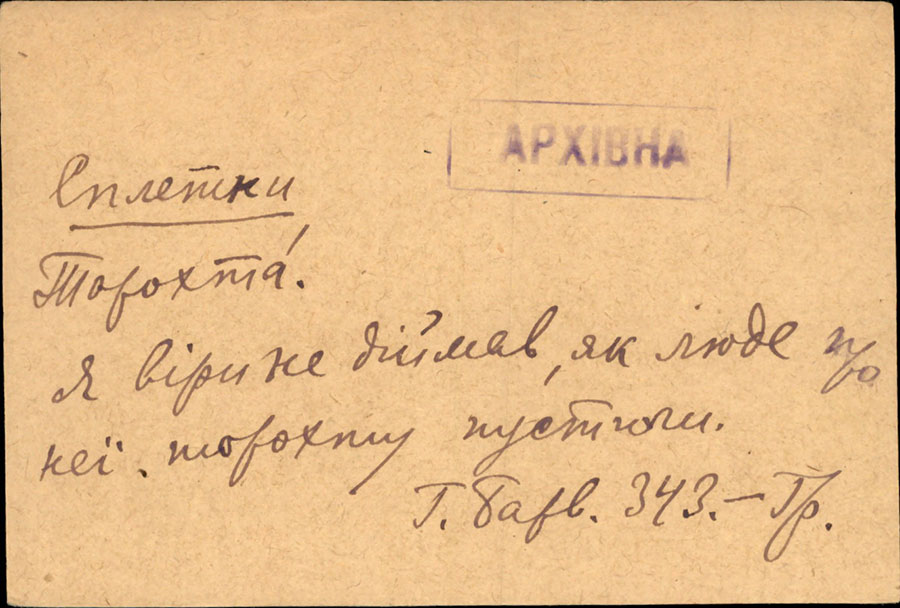 АРХІВНА
Сплетни
Торохта́.
Я віри не діймав, як люде про
неї торохту пустили.
Г. Барв. 343.— Гр.